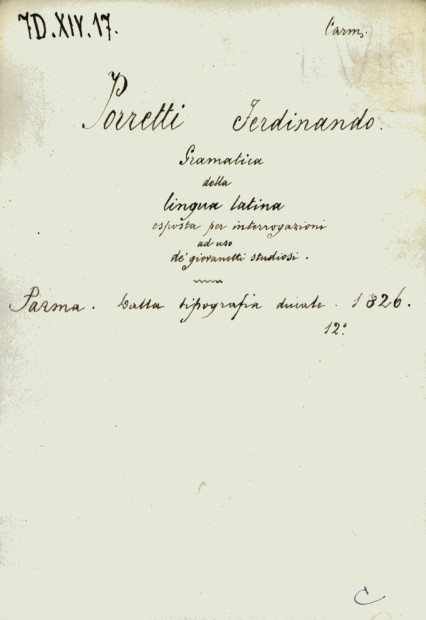 7D.XIV.17.
Carm.
Porretti Ferdinando.
Gramatica
della
lingua latina
esposta per interrogazioni
ad uso
de' giovanetti studiosi.
Parma. Dalla tipografia ducale. 1826.
12°.
C